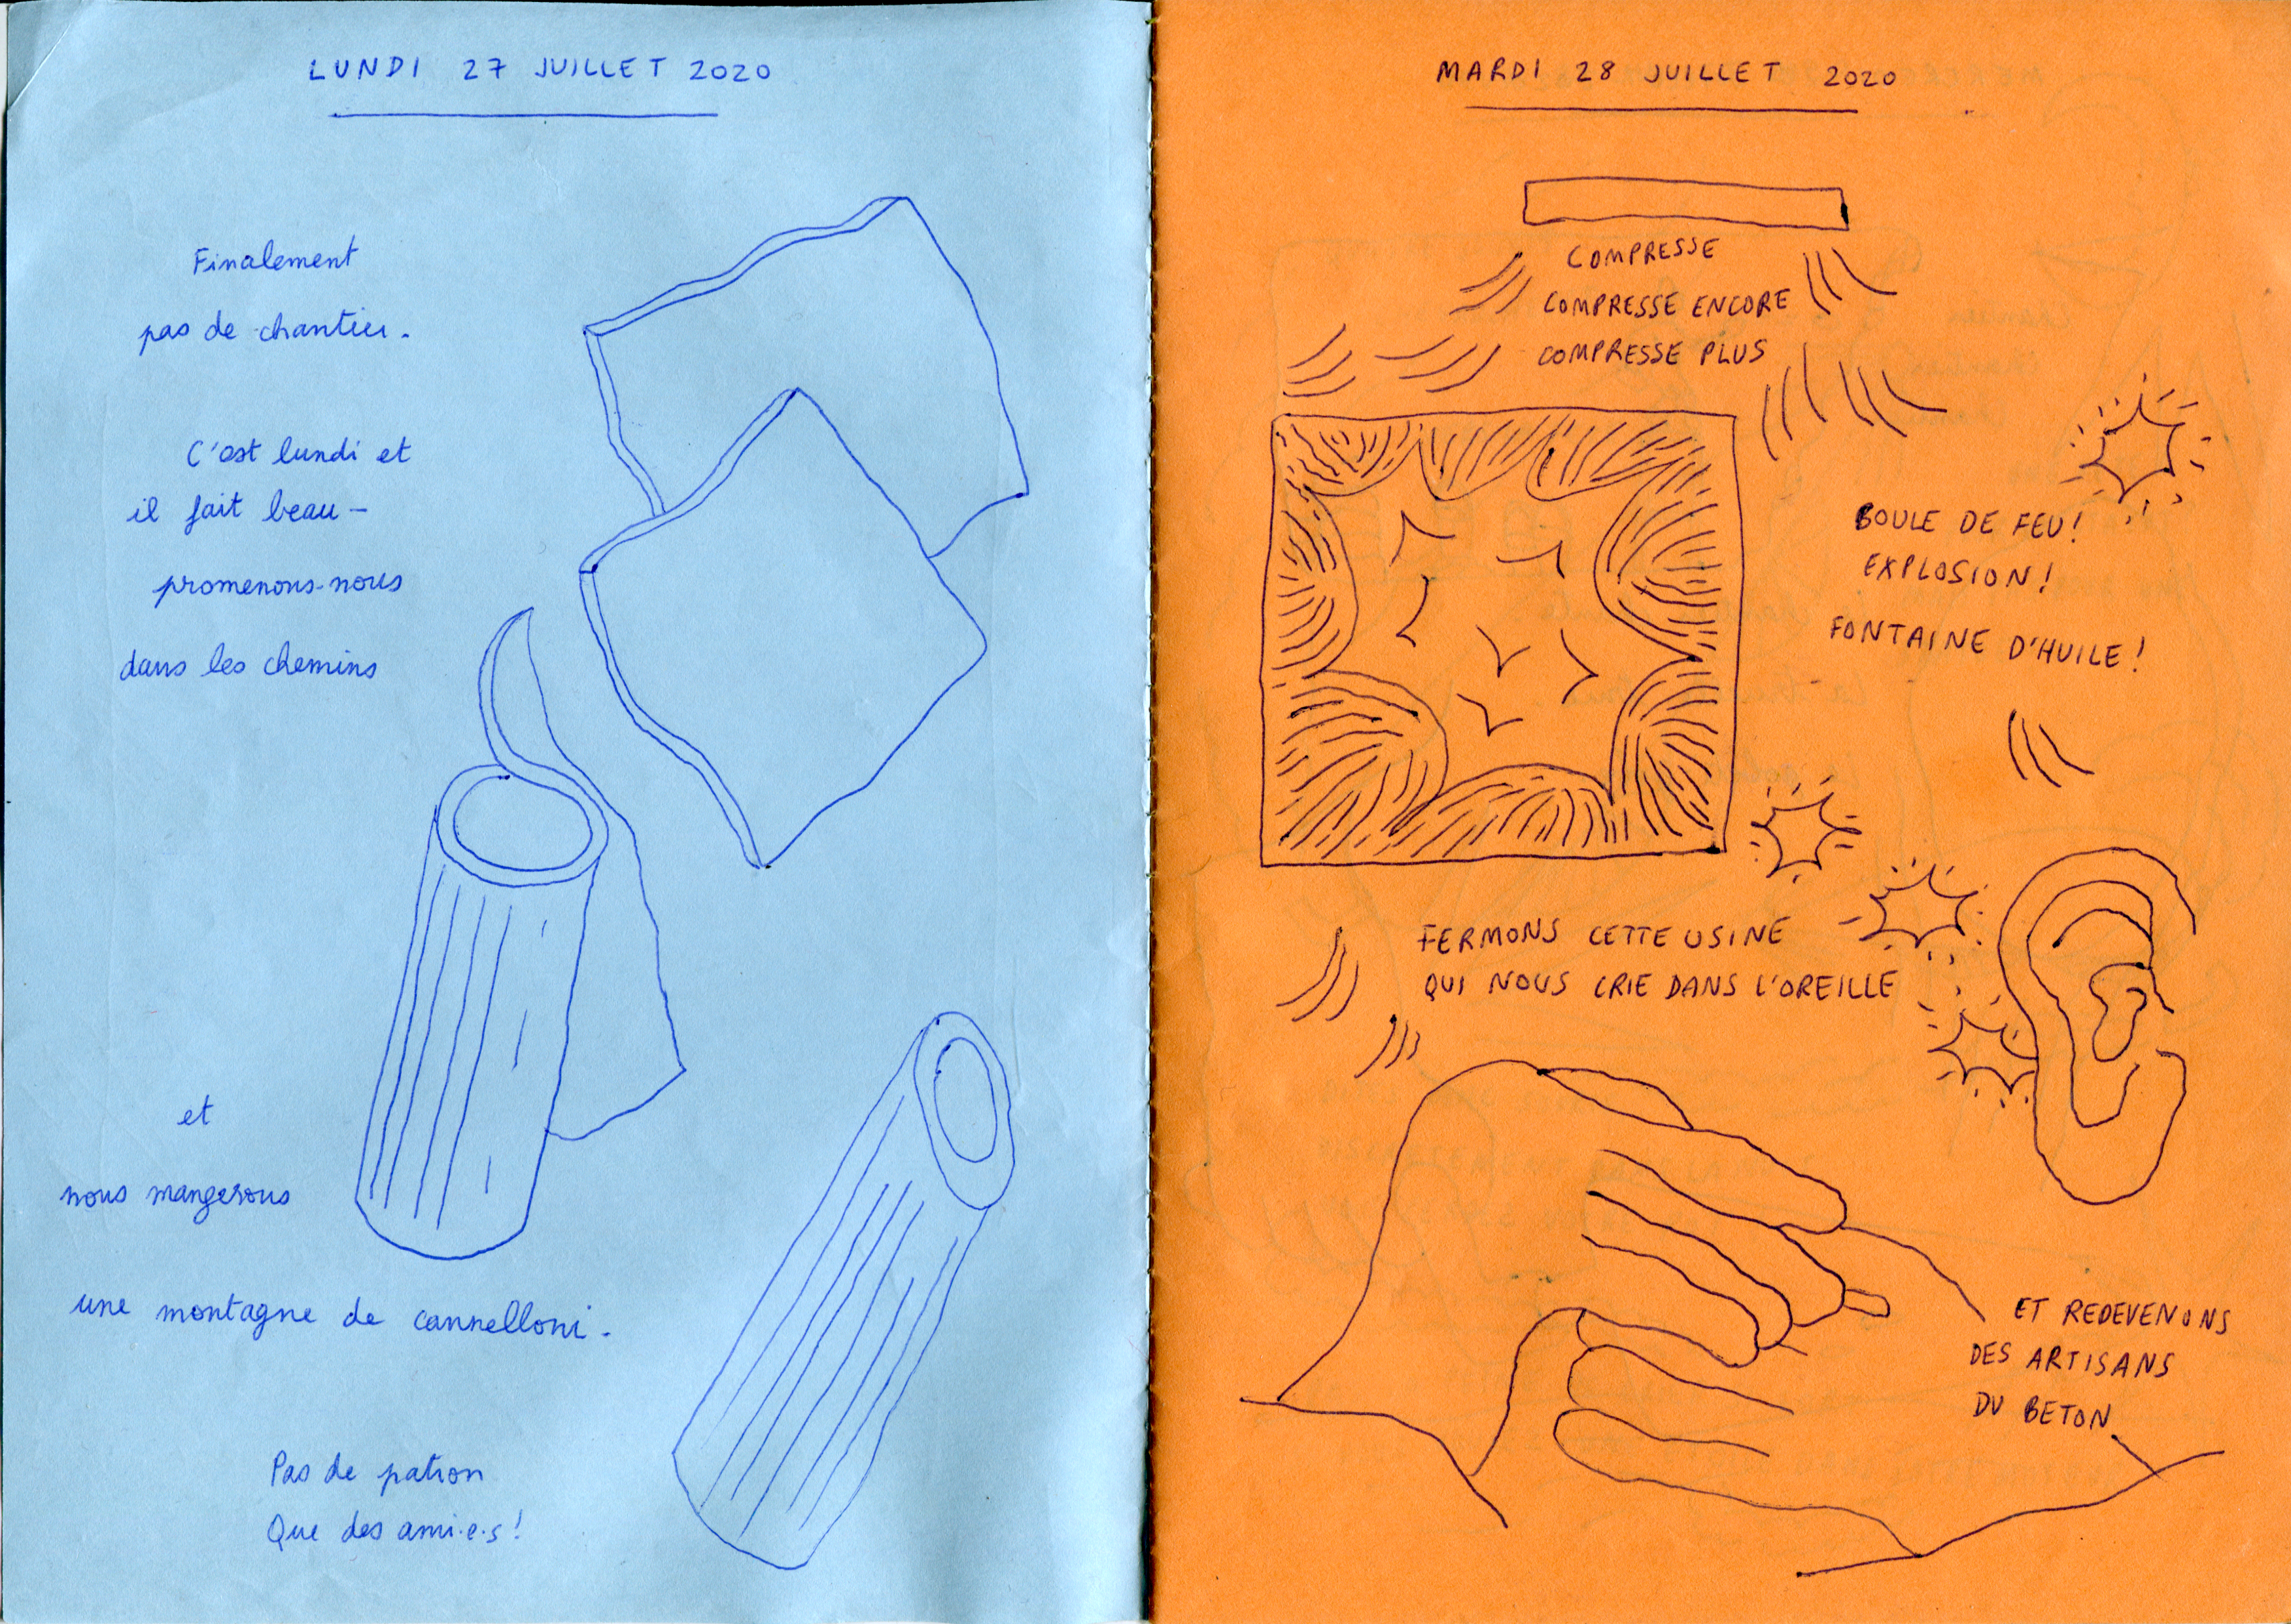 LUNDI 27 JUILLET 2020
Finalement
pas de chantier.
C'est lundi et
il fait beau –
promenons-nous
dans les chemins
et
nous mangerons
une montagne de cannelloni.
Pas de patron
Que des ami·e·s !
MARDI 28 JUILLET 2020
COMPRESSE
COMPRESSE ENCORE
COMPRESSE PLUS
BOULE DE FEU !
EXPLOSION !
FONTAINE D'HUILE !
FERMONS CETTE USINE
QUI NOUS CRIE DANS L'OREILLE
ET REDEVENONS
DES ARTISANS
DU BETON